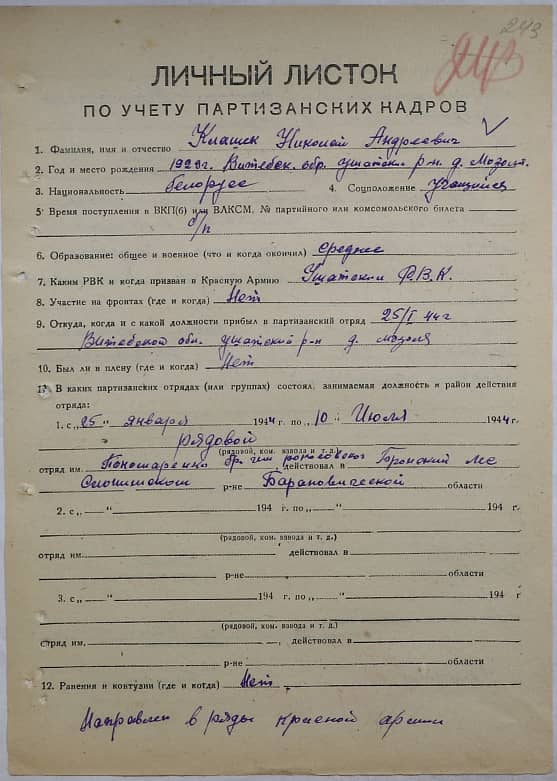 243
ЛИЧНЫЙ ЛИСТОК
ПО УЧЕТУ ПАРТИЗАНСКИХ КАДРОВ
1. Фамилия, имя и отчество Клашек Николай Андреевич
2. Год и место рождения 1929г. Витебск. обр. ушатски р-н. д.
3. Национальность белорус 4. Соцположение Учащийся
5. Время поступления в ВКП(б) или ВЛКСМ, № партийного или комсомольского билета
б/п
6. Образование: общее и военное (что и когда окончил) среднее
7. Каким РВК и когда призван в Красную Армию Ушатским Р.В.К.
8. Участие на фронтах (где и когда) Нет
9. Откуда, когда и с какой должности прибыл в партизанский отряд 25/I 44г
Витебской обл. ушатский р-н д.
10. Был ли в плену (где и когда) Нет
11. В каких партизанских отрядах (или группах) состоял, занимаемая должность и район действия
отряда:
1. с „25 " января 1944 г. по „10 " Июля 1944 г.
рядовой
(рядовой, ком. взвода и т. д.)
отряд им. Пономаренко бр. им рокосовского действовал в
р-не Барановической области
2. с „ " 194 г. по „ " 194 г.
(рядовой, ком. взвода и т. д.)
отряд им. действовал в
р-не области
3. с „ " 194 г. по „ " 194 г
(рядовой, ком. взвода и т. д.)
отряд им. , действовал в
р-не области
12. Ранения и контузии (где и когда) Нет
Направлен в ряды красной армии